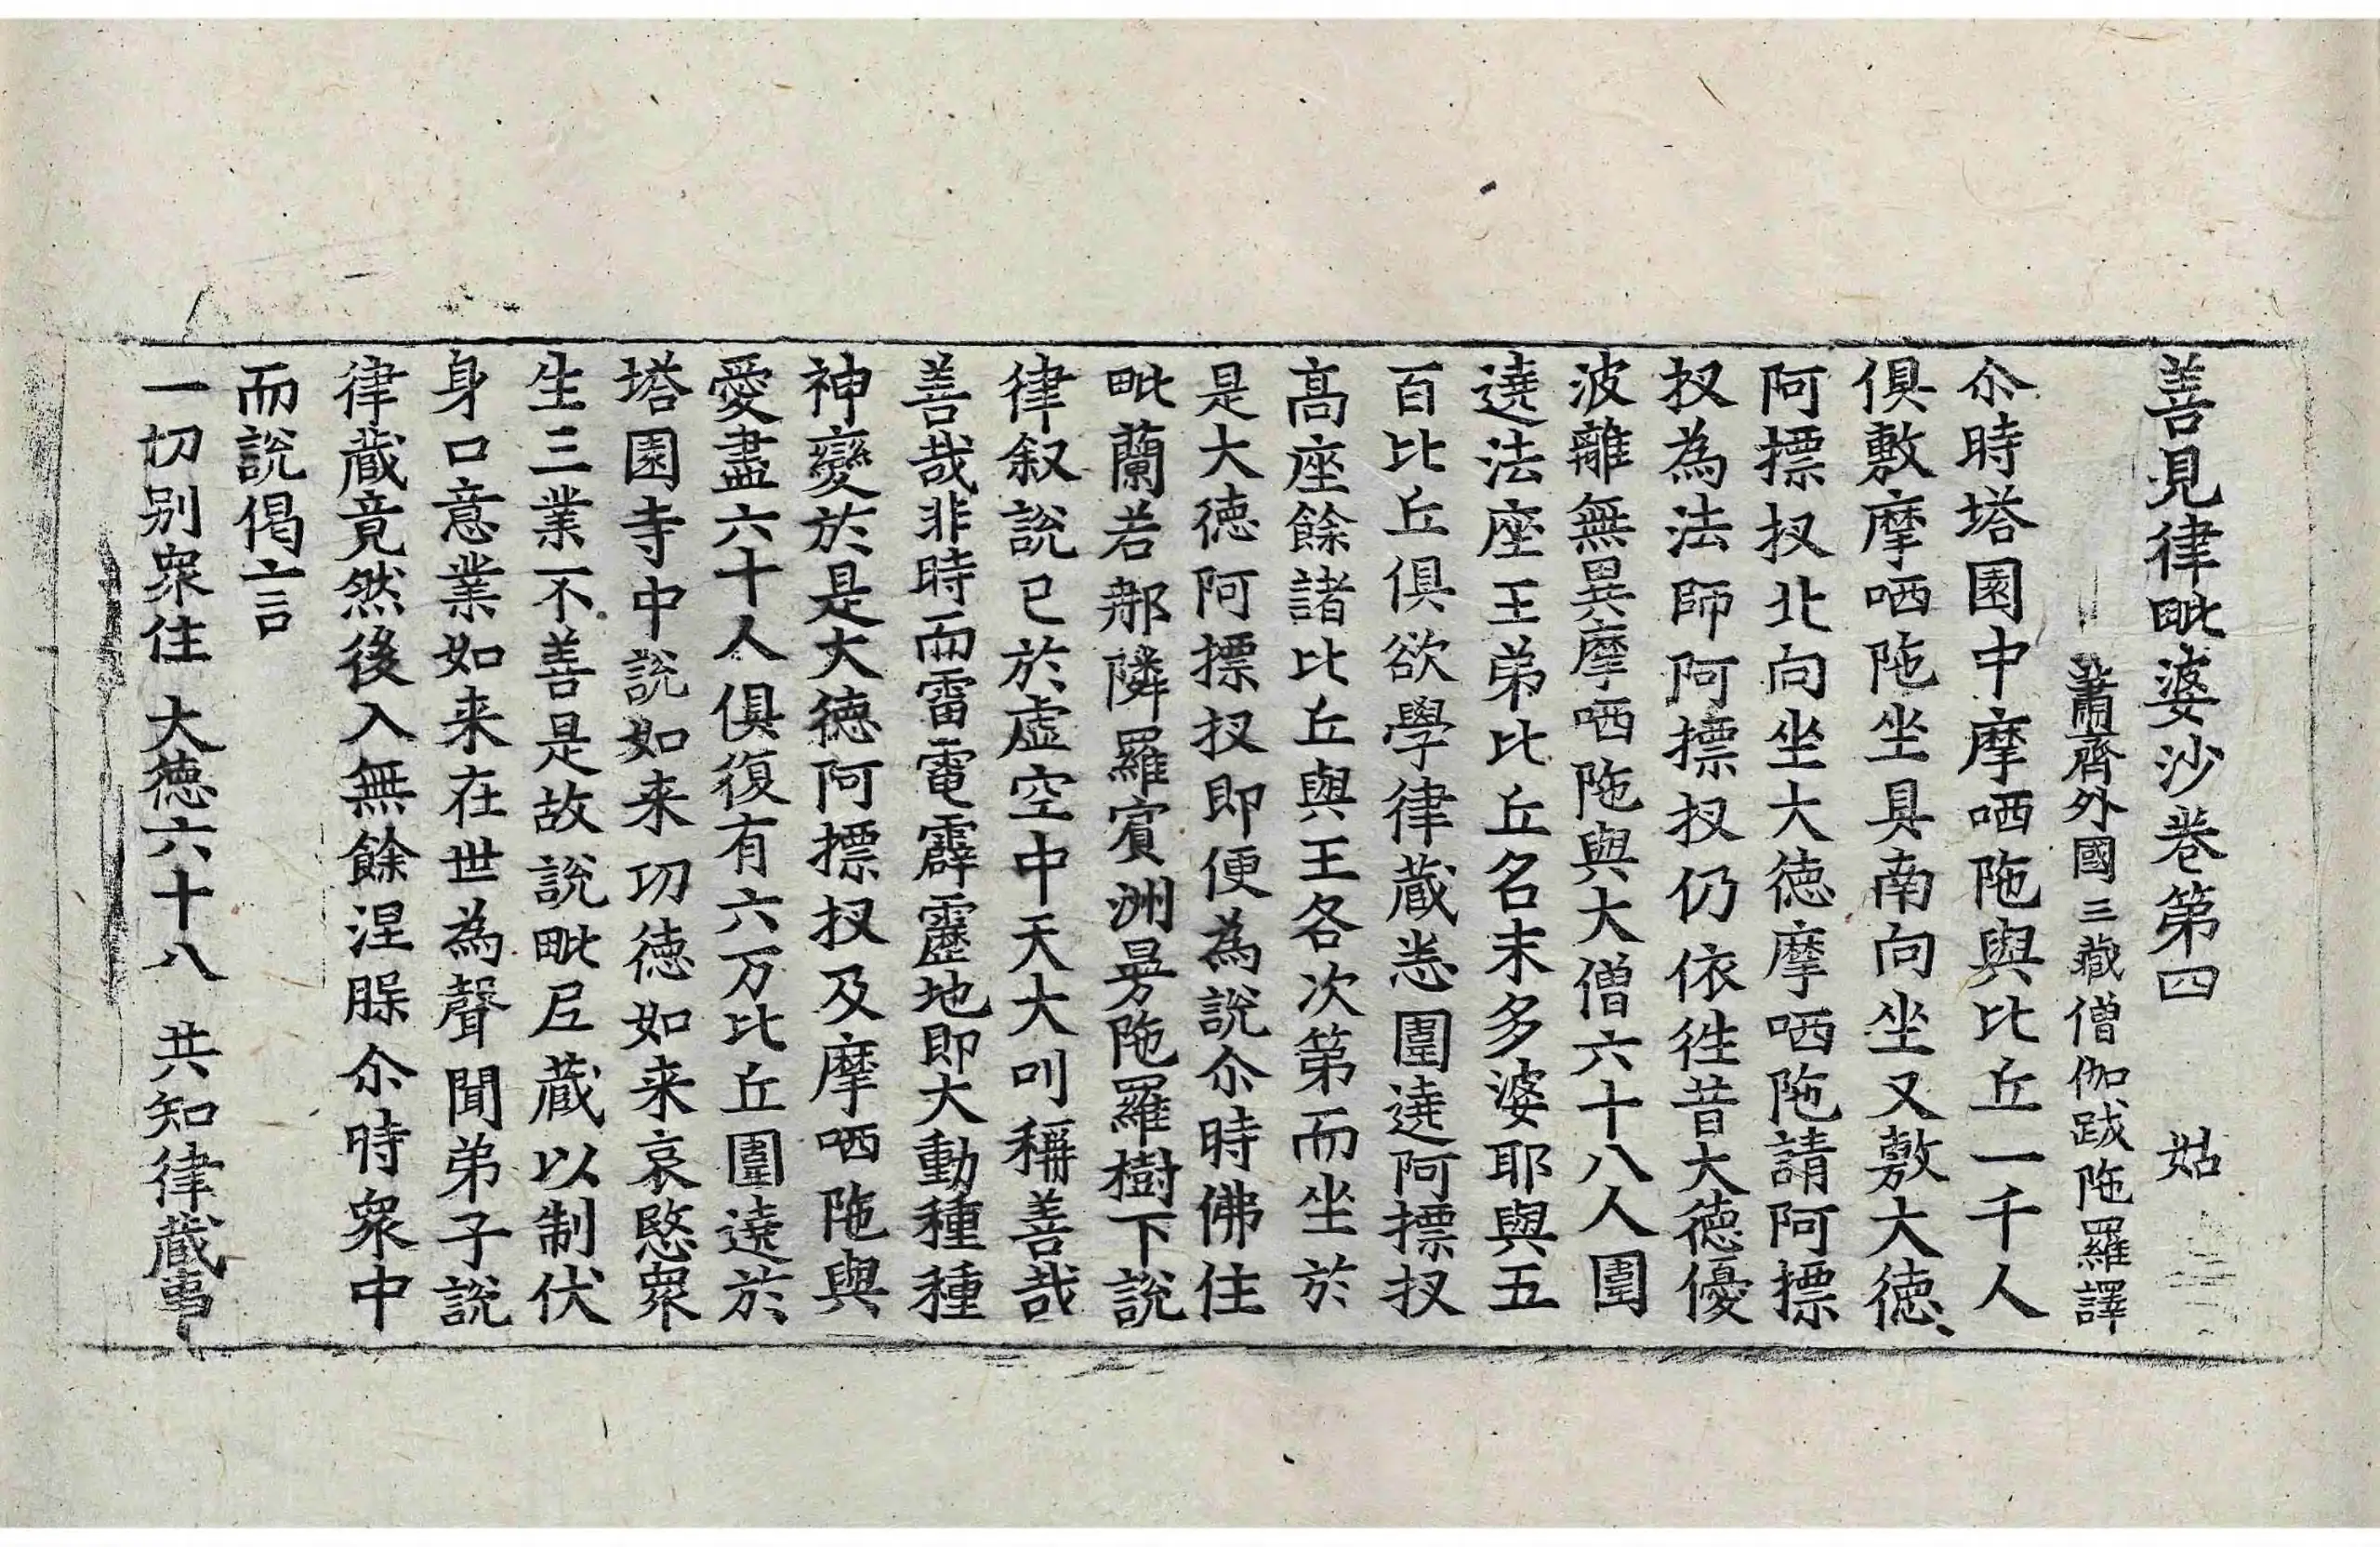 善見律毗婆沙卷第四　姑
蕭齊外國三藏僧伽跋陁羅譯
尒時塔園中摩哂陁與比丘一千人
俱敷摩哂陁坐具南向坐又敷大德
阿摽扠北向坐大德摩哂陁請阿摽
扠為法師阿摽扠仍依徃昔大德優
波離無異摩哂陁與大僧六十八人圍
遶法座王弟比丘名末多婆耶與五
百比丘俱欲學律蔵悉圍遶阿摽扠
高座餘諸比丘與王各次第而坐於
是大德阿摽扠即便為說尒時佛住
毗蘭若𨚗隣羅賔洲曼陁羅樹下說
律叙說已於虛空中天大叫稱善哉
善哉非時而雷電霹靂地即大動種種
神變於是大德阿摽扠及摩哂陁與
愛盡六十人俱復有六万比丘圍遶於
塔園寺中說如来功德如来哀愍眾
生三業不善是故說毗𡰱蔵以制伏
身口意業如来在世為聲聞弟子說
律蔵竟然後入無餘涅脲尒時眾中
而說偈言
一切别眾住　大德六十八　共知律蔵事